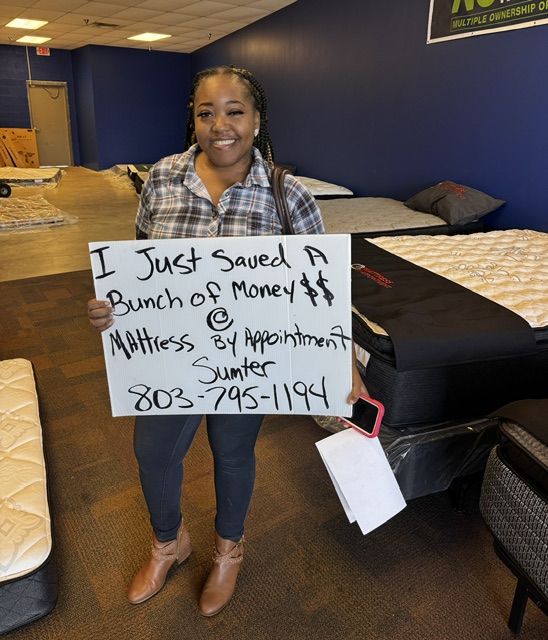 MULTIPLE OWNERSHIP OP
EXIT
I Just Saved A
Bunch of Money $$
@
Mattress By Appointment
Sumter
803-795-1194